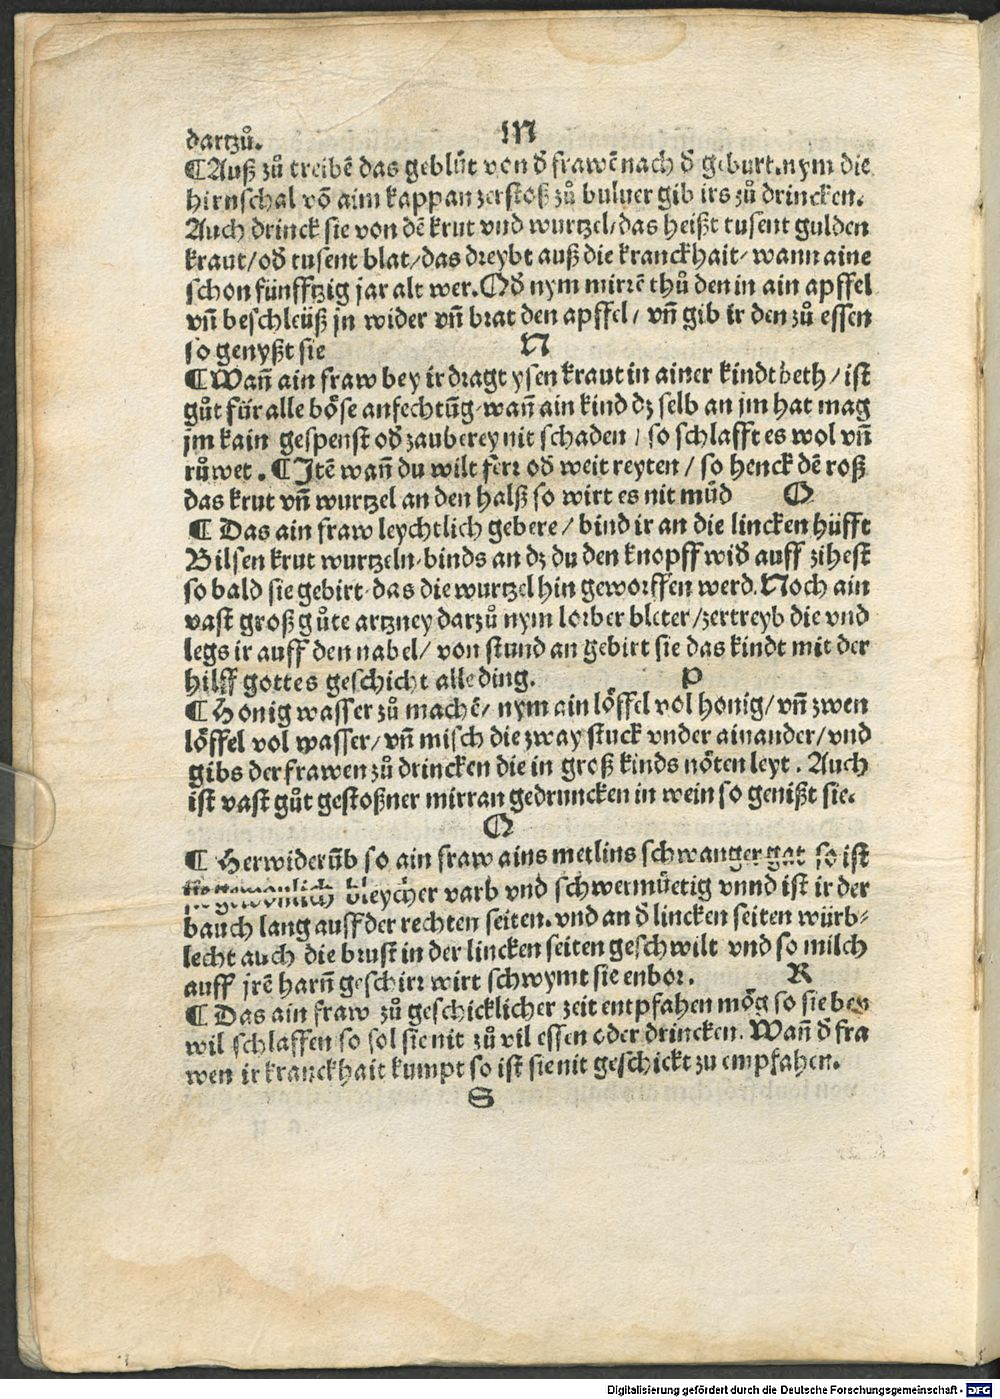 dartzů. M
¶Auß zů treibē das geblůt von ð frawē nach ð geburt. nym die
hirnschal vō aim kappan zerstoß zů buluer gib irs zů drincken.
Auch drinck sie von dē krut vnd wurtzel/das heißt tusent gulden
kraut/oð tusent blat/das dreybt auß die kranckhait/wann aine
schon fünfftzig jar alt wer. Oð nym mirrē thů den in ain apffel
vn̄ beschleüß jn wider vn̄ brat den apffel/vn̄ gib ir den zů essen
so genyßt sie N
¶Wan̄ ain fraw bey ir dragt ysen kraut in ainer kindtbeth/ist
gůt für alle böse anfechtūg wan̄ ain kind dz selb an jm hat mag
jm kain gespenst oð zauberey nit schaden/so schlafft es wol vn̄
růwet. ¶Jtē wan̄ du wilt ferr oð weit reyten/so henck dē roß
das krut vn̄ wurtzel an den halß so wirt es nit můd O
¶Das ain fraw leychtlich gebere/bind ir an die lincken hüfft
Bilsen krut wurtzeln binds an dz du den knopff wið auff zihest
so bald sie gebirt das die wurtzel hin geworffen werd. Noch ain
vast groß gůte artzney darzů nym lorber bleter/zertreyb die vnd
legs ir auff den nabel/von stund an gebirt sie das kindt mit der
hilff gottes geschicht alle ding. P
¶Honig wasser zů machē/nym ain löffel vol honig/vn̄ zwen
löffel vol wasser/vn̄ misch die zway stuck vnder ainander/vnd
gibs der frawen zů drincken die in groß kinds nöten leyt. Auch
ist vast gůt gestoßner mirran gedruncken in wein so genißt sie.
Q
¶Herwiderūb so ain fraw ains metlins schwanger gat so ist
sie gewonlich bleycher varb vnd schwermüetig vnnd ist ir der
bauch lang auff der rechten seiten. vnd an ð lincken seiten würb-
lecht auch die brust in der lincken seiten geschwilt vnd so milch
auff jrē harn̄ geschirr wirt schwymt sie enbor. R
¶Das ain fraw zů geschicklicher zeit entpfahen mög so sie bey
wil schlaffen so sol sie nit zů vil essen oder drincken. Wan̄ ð fra
wen ir kranckhait kumpt so ist sie nit geschickt zu empfahen.
S
Digitalisierung gefördert durch die Deutsche Forschungsgemeinschaft - DFG